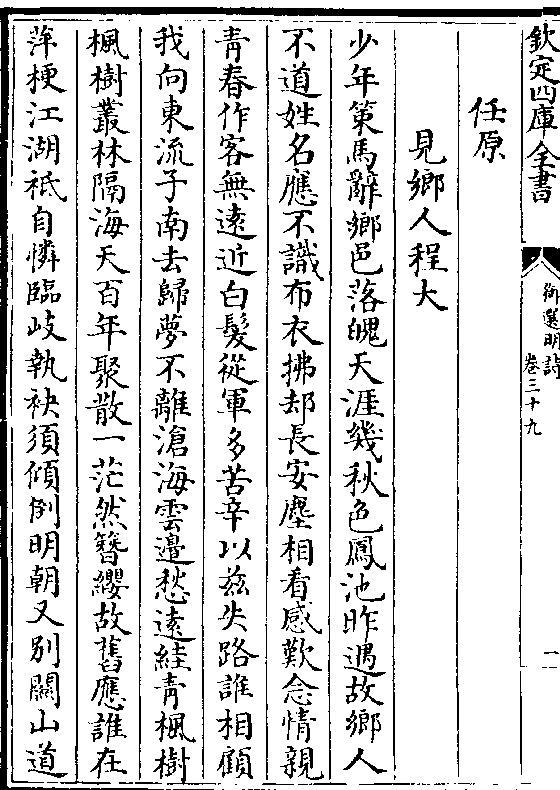 欽定四庫全書
御選明詩
卷三十九
一
任原
見鄉人程大
少年策馬辭鄉邑落魄天涯幾秋色鳳池昨遇故鄉人
不道姓名應不識布衣拂却長安塵相看感歎念情親
青春作客無遠近白髮從軍多苦辛以兹失路誰相顧
我向東流子南去歸夢不離滄海雲邉愁遠絓青楓樹
楓樹叢林隔海天百年聚散一茫然簪纓故舊應誰在
萍梗江湖袛自憐臨岐執袂須傾倒明朝又别關山道